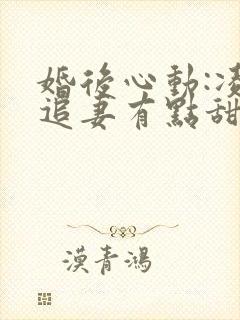 婚後心動:凌
追妻有點甜
漠青鴻